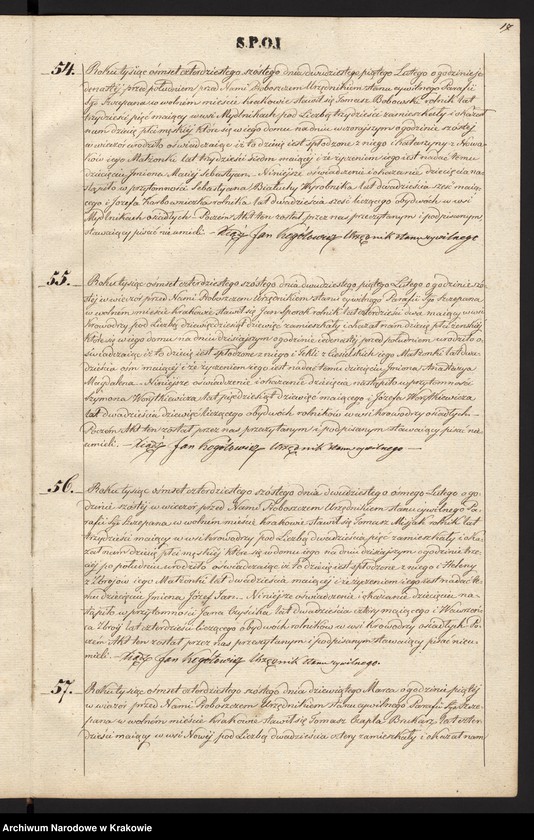 S.P.O.J
18
54. Roku tysiąc ośmset czterdziestego szóstego dnia dwudziestego piątego Lutego o godzinie je-
denastéj przed południem przed Nami Proboszczem Urzędnikiem stanu cywilnego Parafii
Sgo Szczepana w wolném mieście Krakowie stawił się Tomasz Bobowski rolnik lat
trzydzieści pięć mający w wsi Mydlnikach pod Liczbą trzydzieści zamieszkały i okazał
nam dziecię płci męskiéj które się w jego domu na dniu wczorajszym o godzinie szóstéj
w wieczór urodziło oświadczając iż to dziecię jest spłodzone z niego i Katarzyny z Nowa-
ków jego Małżonki lat trzydzieści siedm mającéj i że życzeniem jego jest nadać temu
dziecięciu Imiona Maciéj Sebastyan. Niniejsze oświadczenie i okazanie dziecięcia na-
stąpiło w przytomności Sebastyana Białuchy Wyrobnika lat dwadzieścia sześć mają-
cego i Józefa Karbowniczka rolnika lat dwadzieścia sześć liczącego obydwóch w wsi
Mydlnikach osiadłych. Poczém Akt ten został przez nas przeczytanym i podpisanym
stawający pisać nie umieli. — Xiądz Jan Rogólowicz Urzędnik stanu cywilnego
55. Roku tysiąc ośmset czterdziestego szóstego dnia dwudziestego piątego Lutego o godzinie szó-
stéj w wieczór przed Nami Proboszczem Urzędnikiem Stanu cywilnego Parafii Sgo Szczepana
w wolném mieście Krakowie stawił się Jan Sporek rolnik lat czterdzieści dwa mający w wsi
Krowodrzy pod Liczbą dziewięćdziesiąt dziewięć zamieszkały i okazał nam dziecię płci żeńskiéj
które się w jego domu na dniu dzisiejszym o godzinie jedenastéj przed południem urodziło o-
świadczając iż to dziecię jest spłodzone z niego i Tekli z Cesielskich jego Małżonki lat dwa-
dzieścia ośm mającéj i że życzeniem jego jest nadać temu dziecięciu Imiona Anna Marya
Magdalena. Niniejsze oświadczenie i okazanie dziecięcia nastąpiło w przytomności
Szymona Woytkiewicza lat pięćdziesiąt dziewięć mającego i Józefa Woytkiewicza
lat dwadzieścia dziewięć liczącego obydwóch rolników w wsi Krowodrzy osiadłych.
Poczém Akt ten został przez nas przeczytanym i podpisanym stawający pisać nie
umieli. — Xiądz Jan Rogólowicz Urzędnik stanu cywilnego —
56. Roku tysiąc ośmset czterdziestego szóstego dnia dwudziestego ósmego Lutego o go-
dzinie szóstéj w wieczór przed Nami Proboszczem Urzędnikiem Stanu cywilnego Pa-
rafii Sgo Szczepana w wolném mieście Krakowie stawił się Tomasz Migał rolnik lat
trzydzieści mający w wsi Krowodrzy pod Liczbą dwadzieścia pięć zamieszkały i oka-
zał nam dziecię płci męskiéj które się w domu jego na dniu dzisiejszym o godzinie trze-
ciéj po południu urodziło oświadczając iż to dziecię jest spłodzone z niego i Heleny
z Zbrojów jego Małżonki lat dwadzieścia mającéj i że życzeniem jego jest nadać te-
mu dziecięciu Imiona Józef Jan. Niniejsze oświadczenie i okazanie dziecięcia na-
stąpiło w przytomności Jana Czyścika lat dwadzieścia cztery mającego i Wawrzeń-
ca Zbroj lat czterdzieści liczącego obydwóch rolników w wsi Krowodrzy osiadłych. Po-
czém Akt ten został przez nas przeczytanym i podpisanym stawający pisać nieu-
mieli. — Xiądz Jan Rogólowicz Urzędnik stanu cywilnego.
57. Roku tysiąc ośmset czterdziestego szóstego dnia dziewiątego Marca o godzinie piątéj
w wieczór przed Nami Proboszczem Urzędnikiem Stanu cywilnego Parafii Sgo Szcze-
pana w wolném mieście Krakowie stawił się Tomasz Czapla Brukarz lat czter-
dzieści mający w wsi Nowéj pod Liczbą dwadzieścia cztery zamieszkały i okazał nam
Archiwum Narodowe w Krakowie